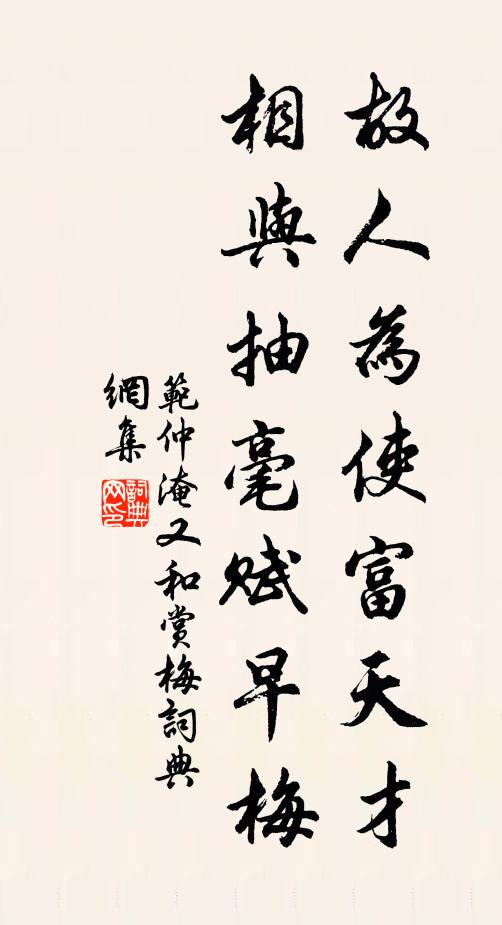 故人為使富天才
相與抽毫賦早梅
範仲淹又和賞梅詞典
網集
詞典
网印